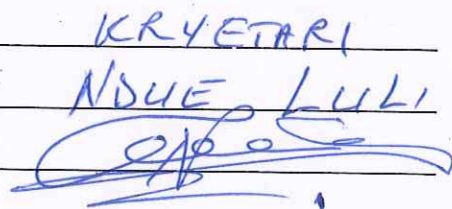 KRYETARI
NDUE LULI